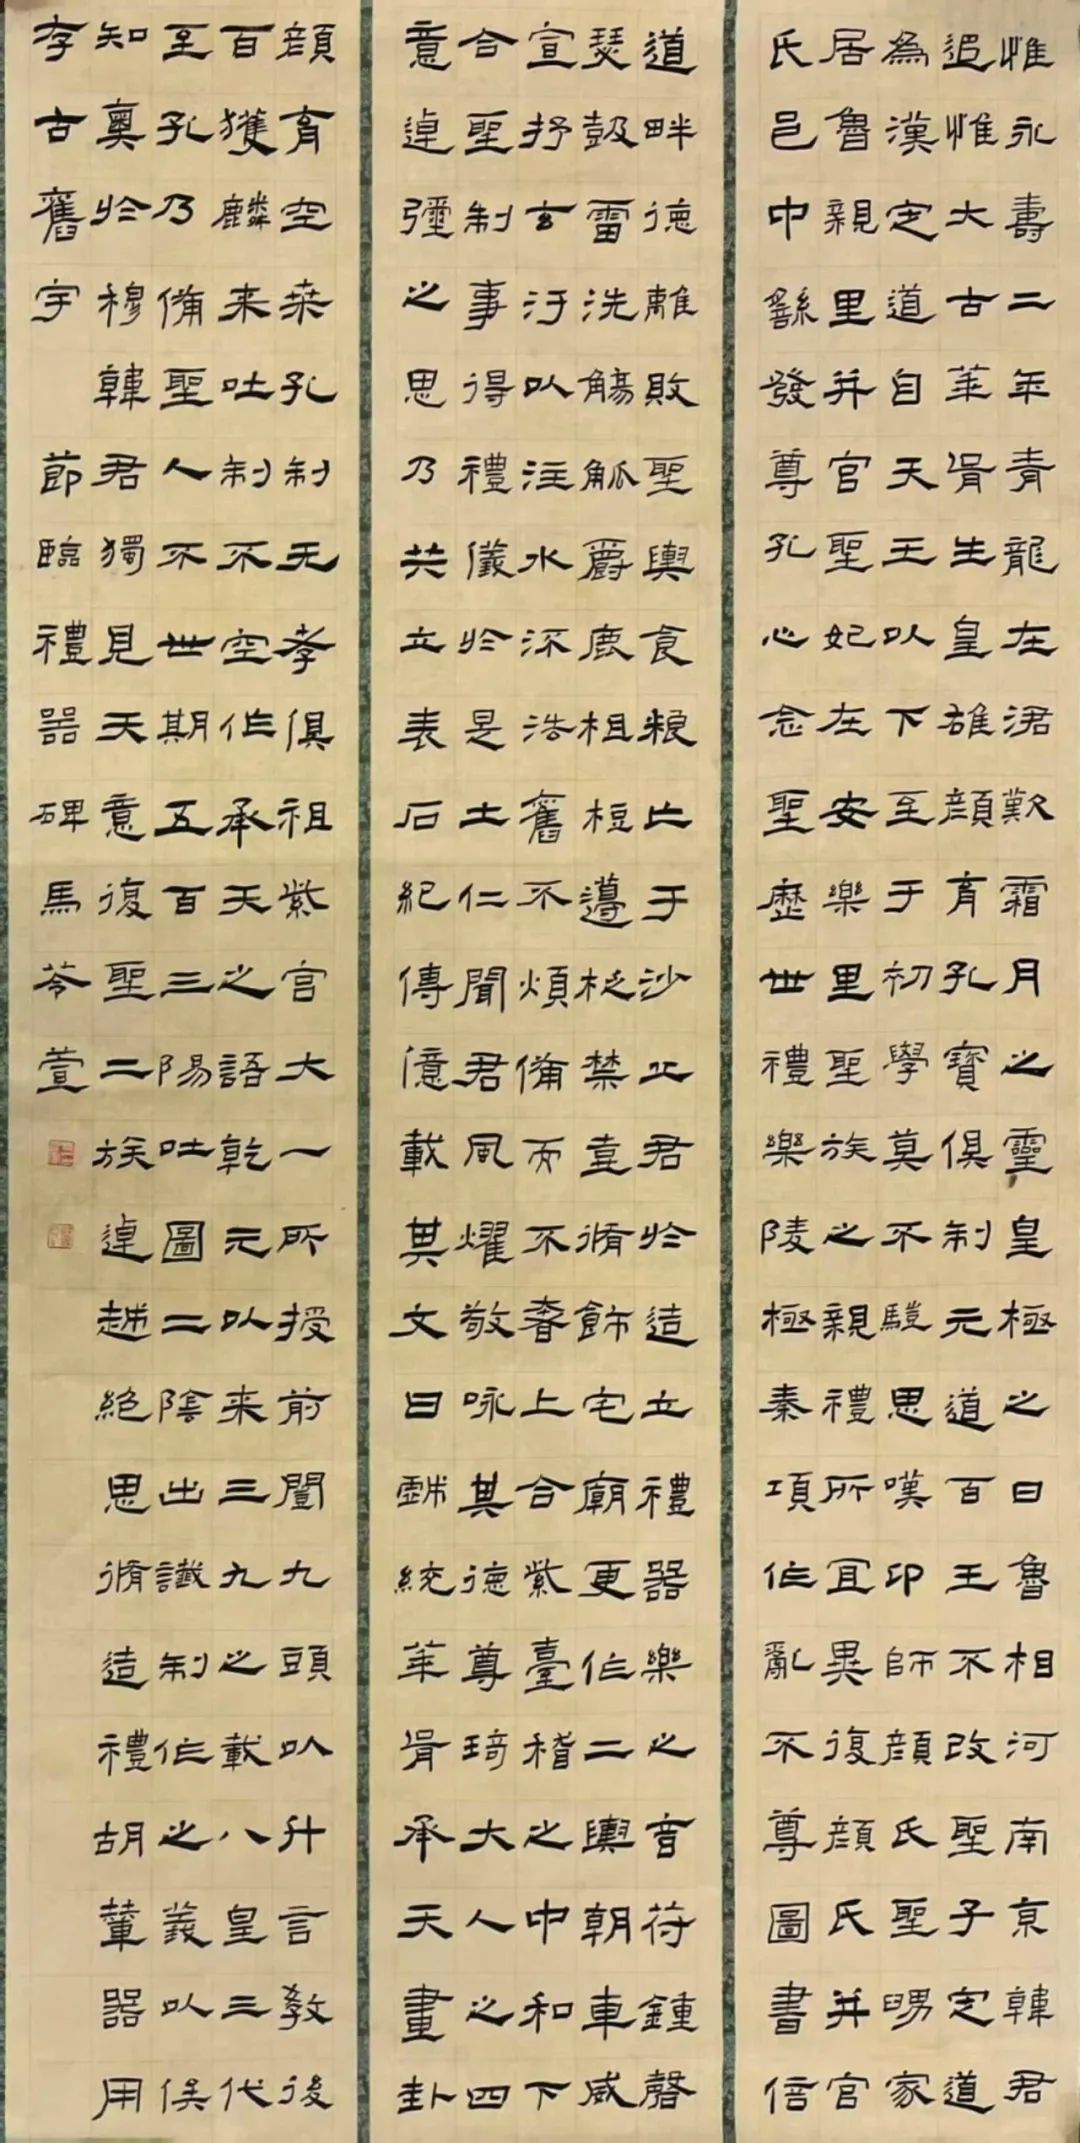 惟永壽二年青龍在涒歎霜月之靈皇極之日魯相河南京韓君
追惟大古華胥生皇雄顏育孔寶俱制元道百王不改聖子定道
為漢定道自天王以下至于初學莫不驥思嘆卬師顏氏聖舅家
居魯親里并官聖妃在安樂里聖族之親禮所宜異復顏氏并官
氏邑中繇發尊孔心念聖歷世禮樂陵極秦項作亂不尊圖書信
道畔德離敗聖輿食粮亡于沙丘君於造立禮器樂之音符鍾磬
瑟鼓雷洗觴觚爵鹿柤梪邊柉禁壺脩飾宅廟更作二輿朝車威
宣抒玄汙以注水流法舊不煩備而不奢上合紫臺稽之中和下
合聖制事得禮儀於是土仁聞君風燿敬咏其德尊琦大人之四
意逴彌之思乃共立表石紀傳億載其文曰戲統華胥承天畫卦
顏育空桒孔制元孝俱祖紫宮大一所授前闓九頭以升言教後
百獲麟来吐制不空作承天之語乾元以来三九之載八皇三代
至孔乃備聖人不世期五百三陽吐圖二陰出讖制作之義以俟
知奧於穆韓君獨見天意復聖二族逴越絕思脩造禮胡輦器用
存古舊宇 節臨禮器碑馬苓萱